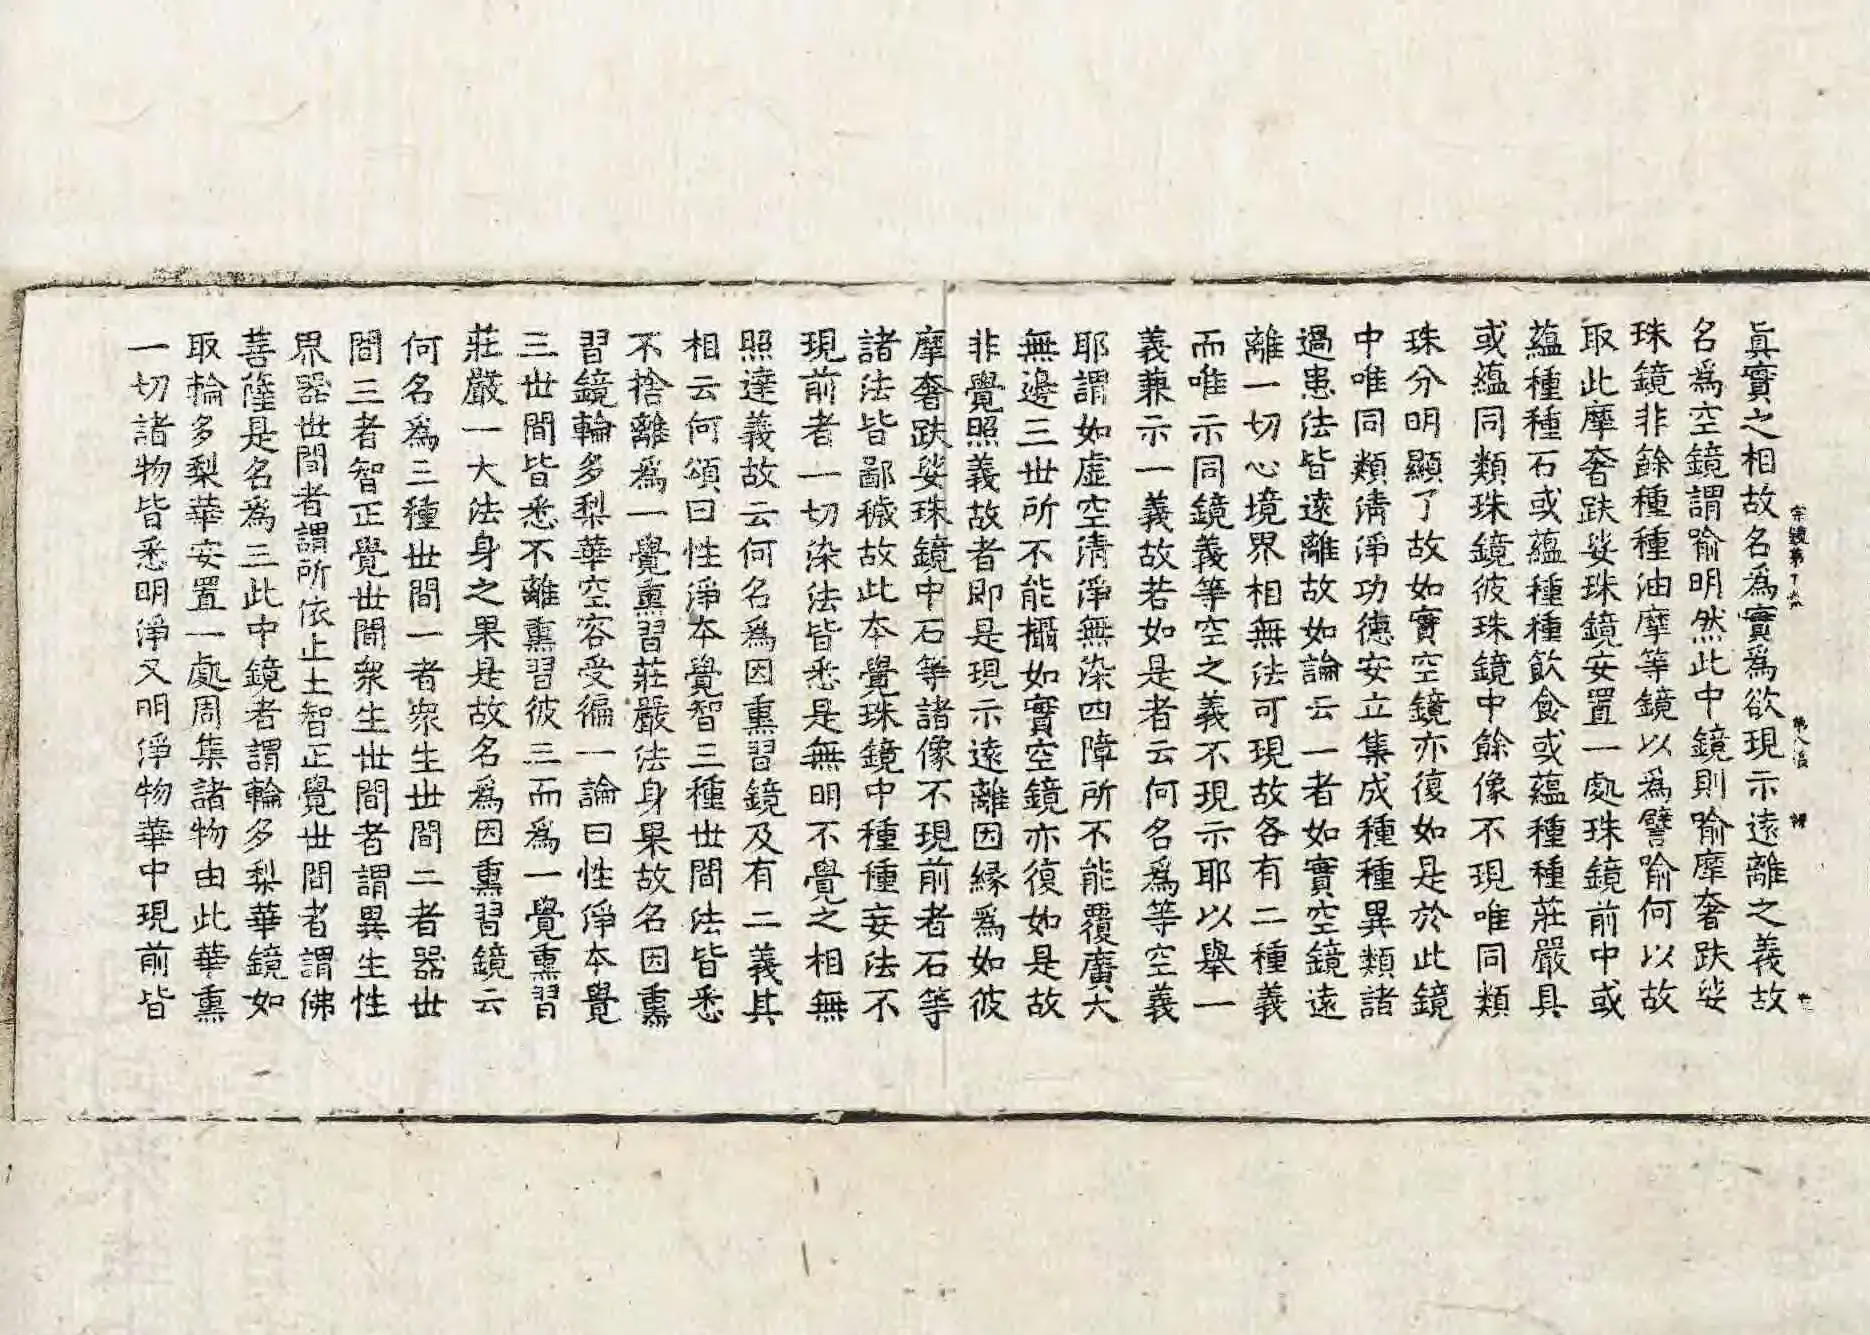 宗鏡第十
第八張
眞實之相故名爲實爲欲現示遠離之義故
名爲空鏡謂喻明然此中鏡則喻摩奢趺娑
珠鏡非餘種種油摩等鏡以爲譬喻何以故
取此摩奢趺娑珠鏡安置一處珠鏡前中或
蘊種種石或蘊種種飲食或蘊種種莊嚴具
或蘊同類珠鏡彼珠鏡中餘像不現唯同類
珠分明顯了故如實空鏡亦復如是於此鏡
中唯同類清淨功德安立集成種種異類諸
過患法皆遠離故如論云一者如實空鏡遠
離一切心境界相無法可現故各有二種義
而唯示同鏡義等空之義不現示耶以舉一
義兼示一義故若如是者云何名爲等空義
耶謂如虛空清淨無染四障所不能覆廣大
無邊三世所不能攝如實空鏡亦復如是故
非覺照義故者即是現示遠離因縁爲如彼
摩奢趺娑珠鏡中石等諸像不現前者石等
諸法皆鄙穢故此本覺珠鏡中種種妄法不
現前者一切染法皆悉是無明不覺之相無
照達義故云何名爲因熏習鏡及有二義其
相云何頌曰性淨本覺智三種世間法皆悉
不捨離爲一覺熏習莊嚴法身果故名因熏
習鏡輪多梨華空容受徧一論曰性淨本覺
三世間皆悉不離熏習彼三而爲一覺熏習
莊嚴一大法身之果是故名爲因熏習鏡云
何名爲三種世間一者衆生世間二者器世
間三者智正覺世間衆生世間者謂異生性
界器世間者謂所依止土智正覺世間者謂佛
菩薩是名爲三此中鏡者謂輪多梨華鏡如
取輪多梨華安置一處周集諸物由此華熏
一切諸物皆悉明淨又明淨物華中現前皆